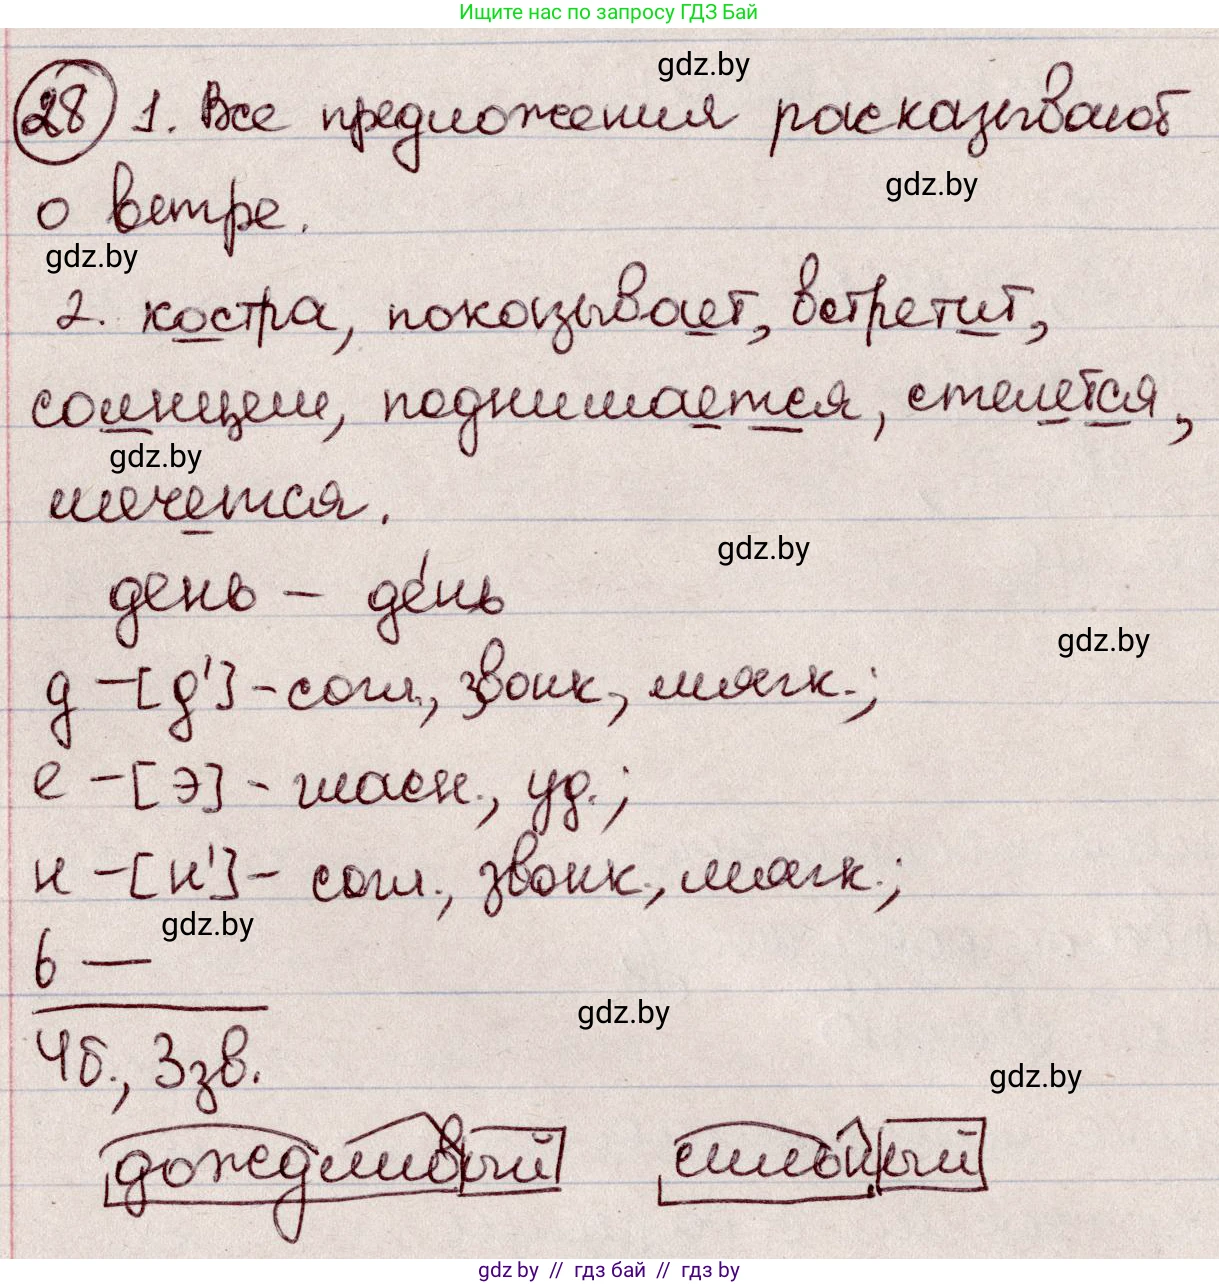 Ищите нас по запросу ГДЗ Бай
gdz.by
28 1. Все предложения расказывают
gdz.by
о ветре.
gdz.by
2. костра, показывает, встретит,
солнцем, поднимается, стелется,
gdz.by
мечется.
gdz.by
день – де́нь
gdz.by
д – [д'] - согл., звонк., мягк.;
е – [э] - гласн., уд.;
н – [н'] - согл., звонк., мягк.;
gdz.by
ь —
gdz.by
4б., 3зв.
gdz.by
дождливый сильный
gdz.by // гдз бай // гдз by